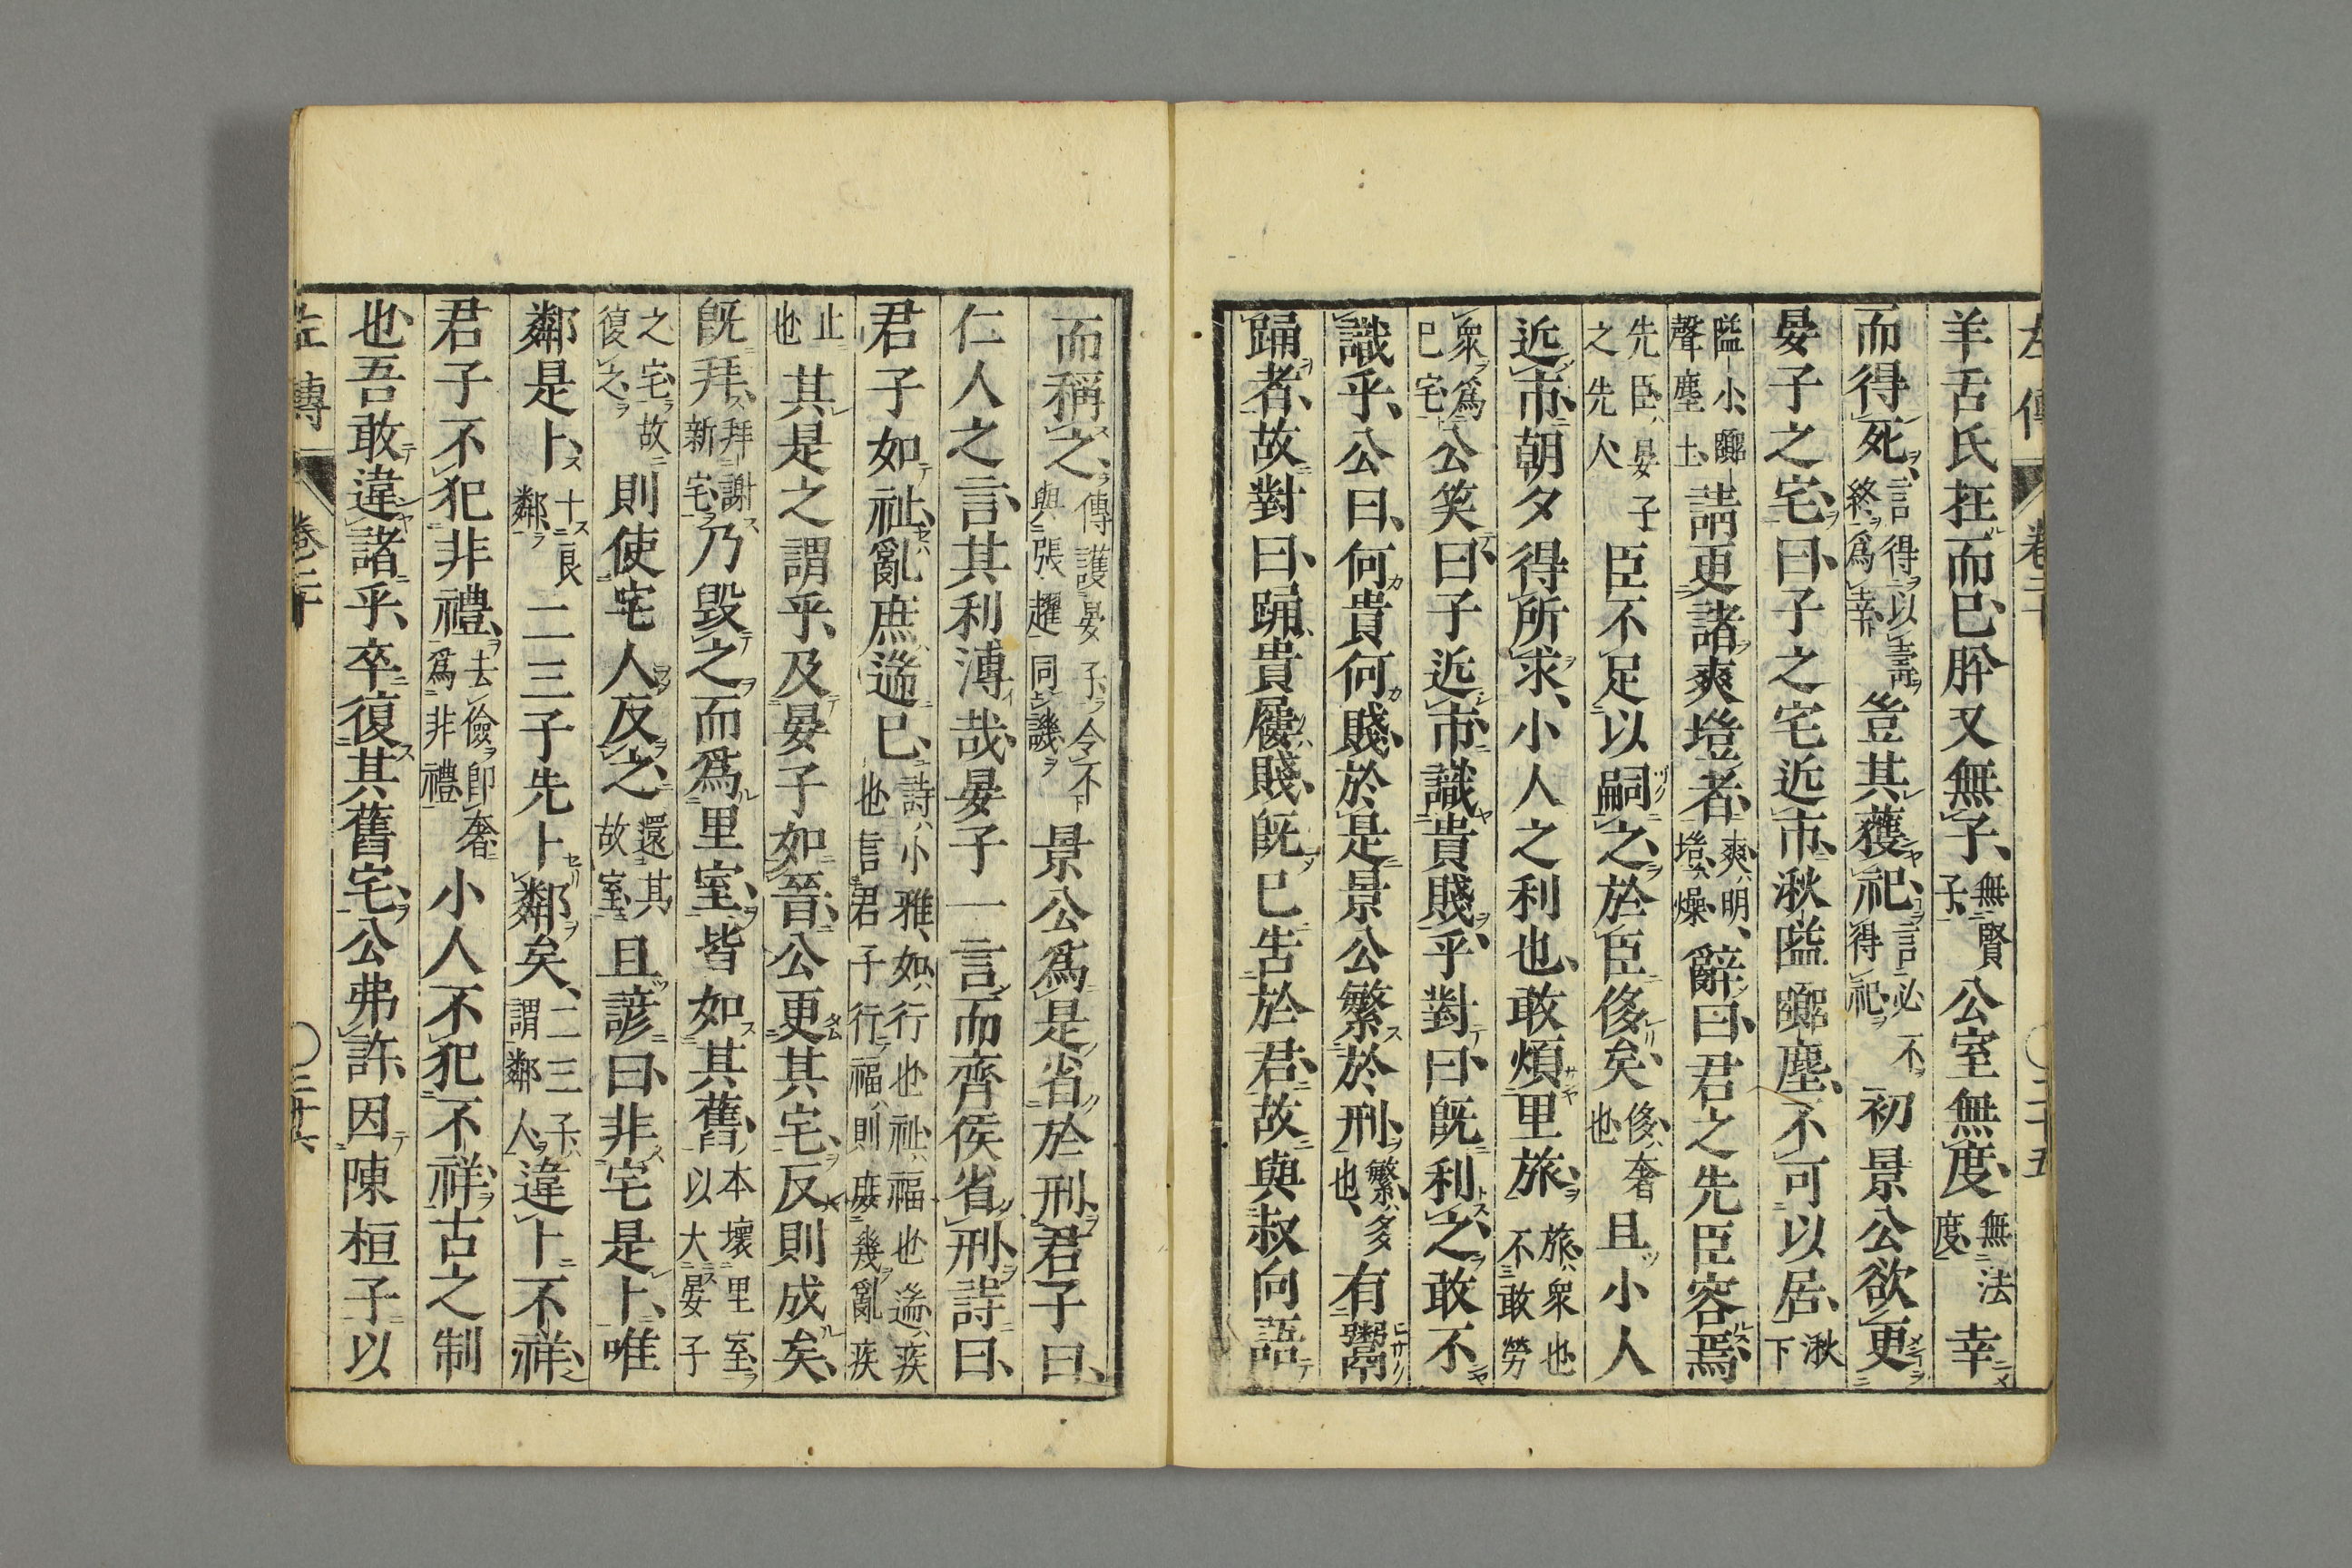 左傳 卷二十 〇三十五
羊舌氏在而已肸又無子無賢子公室無度無法度幸
而得死言得以壽終爲幸豈其獲祀言必不得祀初景公欲更
晏子之宅曰子之宅近市湫隘嚻塵不可以居湫下
隘小嚻聲塵土請更諸爽塏者爽明塏燥辭曰君之先臣容焉
先臣晏子之先人臣不足以嗣之於臣侈矣侈奢也且小人
近市朝夕得所求小人之利也敢煩里旅旅衆也不敢勞
衆爲已宅公笑曰子近市識貴賤乎對曰既利之敢不
識乎公曰何貴何賤於是景公繁於刑繁多也有鬻
踊者故對曰踊貴屨賤既已告於君故與叔向語
而稱之傳護晏子令不與張趯同譏景公爲是省於刑君子曰
仁人之言其利溥哉晏子一言而齊侯省刑詩曰
君子如祉亂庶遄已詩小雅如行也祉福也遄疾也言君子行福則庶幾亂疾
止也其是之謂乎及晏子如晉公更其宅反則成矣
既拜拜謝新宅乃毀之而爲里室皆如其舊本壞里室以大晏子
之宅故復之則使宅人反之還其故室且諺曰非宅是卜唯
鄰是卜卜良鄰二三子先卜鄰矣二三子謂鄰人違卜不祥
君子不犯非禮去儉即奢爲非禮小人不犯不祥古之制
也吾敢違諸乎卒復其舊宅公弗許因陳桓子以
左傳 卷二十 〇三十六